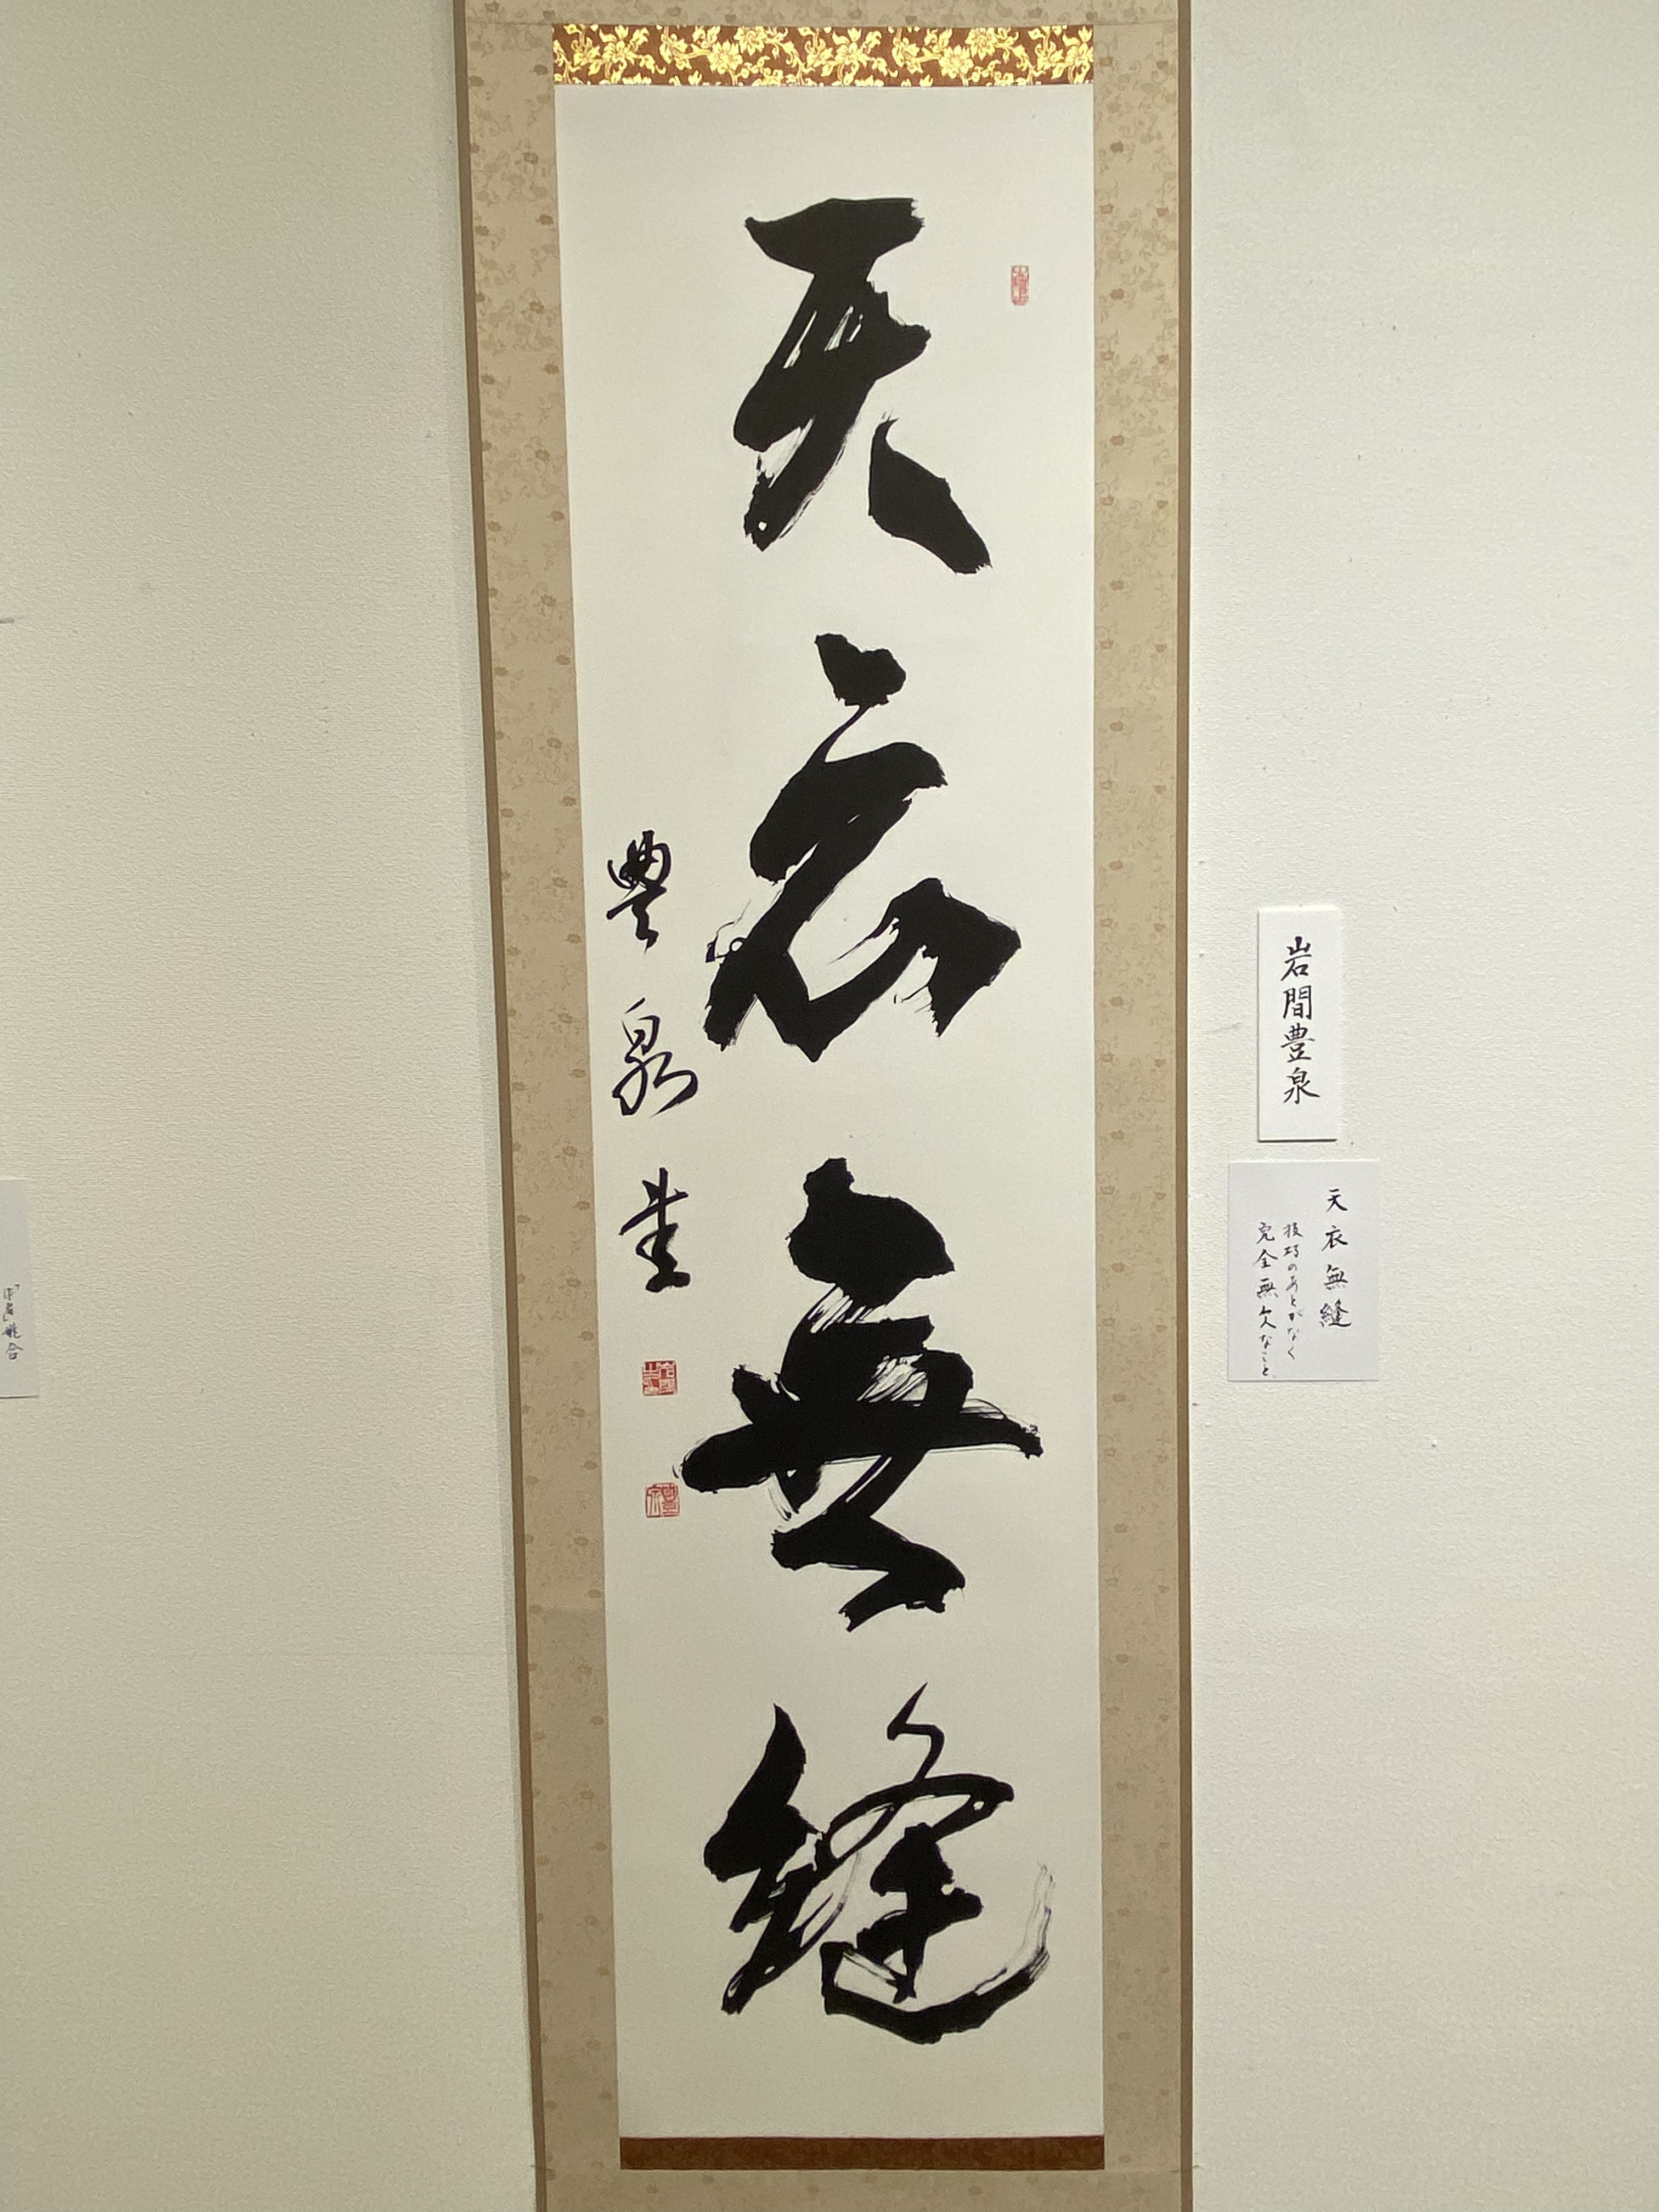 天衣無縫
豊泉書
岩間豊泉
天衣無縫
技巧のあとがなく
完全無欠なこと